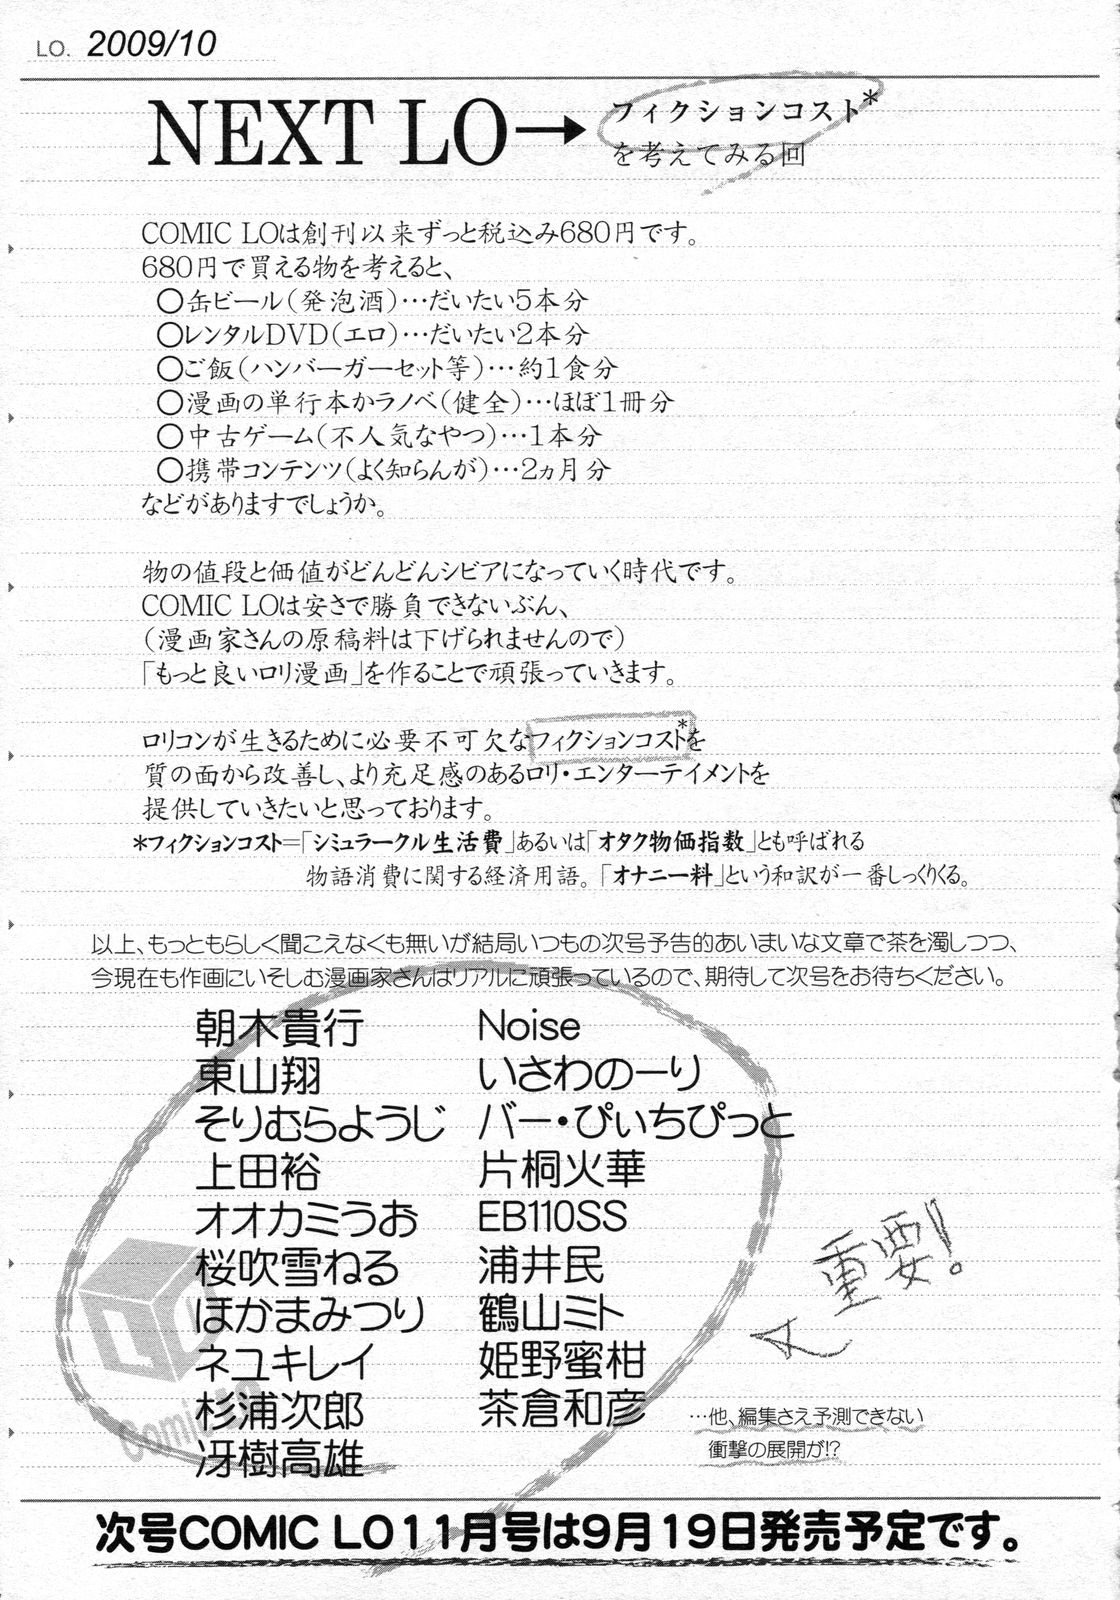 LO. 2009/10
NEXT LO→
フィクションコスト*
を考えてみる回
COMIC LOは創刊以来ずっと税込み680円です。
680円で買える物を考えると、
○缶ビール(発泡酒)…だいたい5本分
○レンタルDVD(エロ)…だいたい2本分
○ご飯(ハンバーガーセット等)…約1食分
○漫画の単行本かラノベ(健全)…ほぼ1冊分
○中古ゲーム(不人気なやつ)…1本分
○携帯コンテンツ(よく知らんが)…2ヵ月分
などがありますでしょうか。
物の値段と価値がどんどんシビアになっていく時代です。
COMIC LOは安さで勝負できないぶん、
(漫画家さんの原稿料は下げられませんので)
「もっと良いロリ漫画」を作ることで頑張っていきます。
ロリコンが生きるために必要不可欠なフィクションコスト*を
質の面から改善し、より充足感のあるロリ・エンターテイメントを
提供していきたいと思っております。
*フィクションコスト=「シミュラークル生活費」あるいは「オタク物価指数」とも呼ばれる
物語消費に関する経済用語。「オナニー料」という和訳が一番しっくりくる。
以上、もっともらしく聞こえなくも無いが結局いつもの次号予告的あいまいな文章で茶を濁しつつ、
今現在も作画にいそしむ漫画家さんはリアルに頑張っているので、期待して次号をお待ちください。
朝木貴行
東山翔
そりむらようじ
上田裕
オオカミうお
桜吹雪ねる
ほかまみつり
ネユキレイ
杉浦次郎
冴樹高雄
Noise
いさわのーり
バー・ぴぃちぴっと
片桐火華
EB110SS
浦井民
鶴山ミト
姫野蜜柑
茶倉和彦
重要!
…他、編集さえ予測できない
衝撃の展開が!?
Comic LO
次号COMIC LO11月号は9月19日発売予定です。